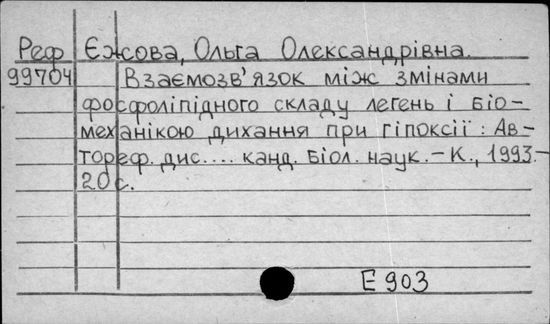 Реф Єжова, Ольга Олександрівна.
99704 Взаємозв'язок між змінами
фосфоліпідного складу легень і біо-
механікою дихання при гіпоксії : Ав-
тореф. дис.... канд. біол. наук. - К., 1993.-
20 с.
Е 903